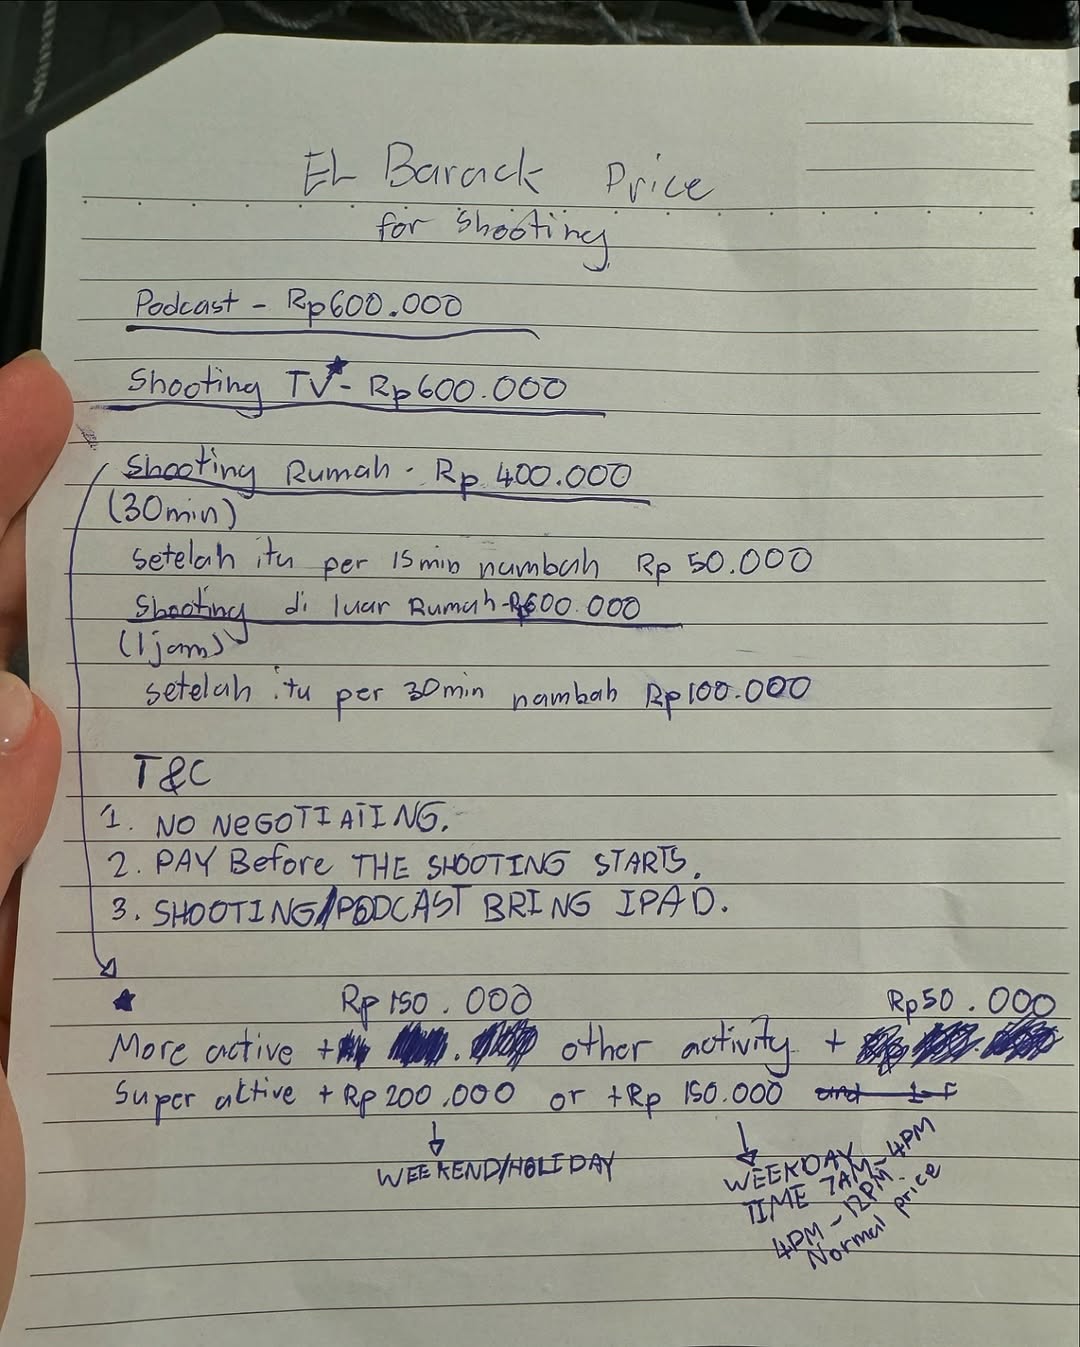 EL Barack Price
for shooting
Podcast - Rp600.000
Shooting TV★- Rp600.000
Shooting Rumah - Rp 400.000
(30min)
setelah itu per 15min nambah Rp 50.000
Shooting di luar Rumah-Rp600.000
(1jam)
setelah itu per 30min nambah Rp100.000
T&C
1. NO NeGOTIATING.
2. PAY Before THE SHOOTING STARTS.
3. SHOOTING/PODCAST BRING IPAD.
★ Rp150.000 Rp50.000
More active + other activity +
Super aktive + Rp200.000 or +Rp 150.000
WEEKEND/HOLIDAY
WEEKDAY
TIME 7AM-4PM
4PM-12PM.
Normal price